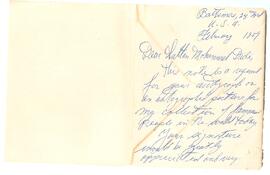 Baltimore, 24, Md
U. S. A.
February 1957
Dear
This note is a request
for your autograph on
an autographed picture for
my collection of Famous
People in the World today
Your signature
would be greatly
appreciated and very